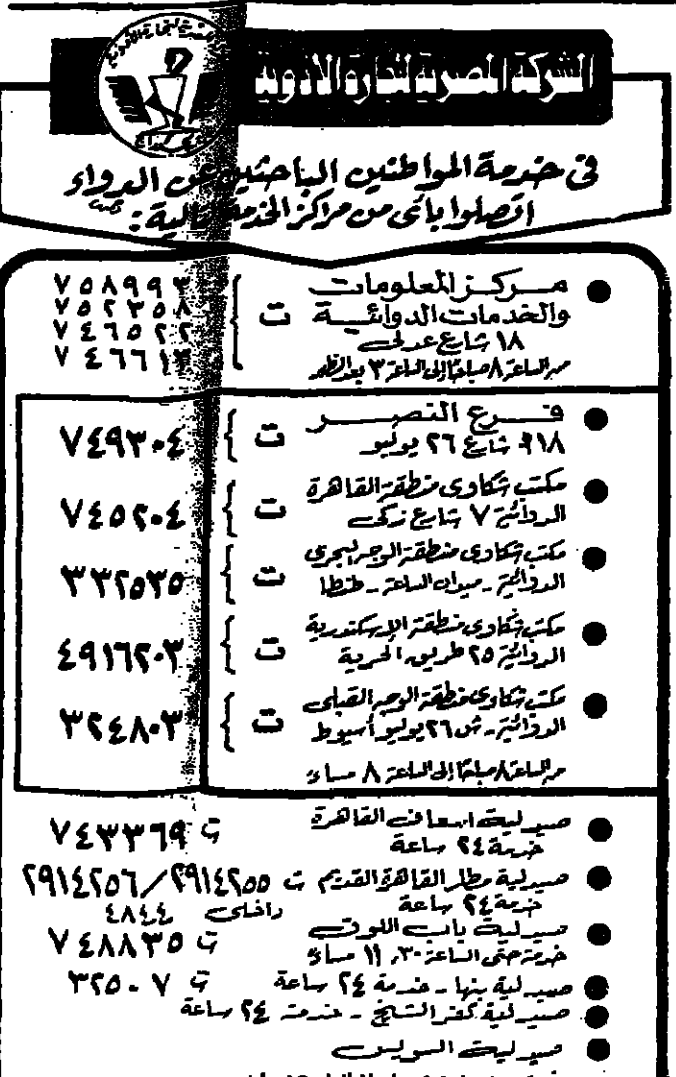 الشركة المصرية لتجارة الأدوية
فى خدمة المواطنين الباحثين عن الدواء
اتصلوا بأى من مراكز الخدمة التالية :
مركز المعلومات
والخدمات الدوائية
١٨ شارع عدلى
من الساعة ٨ صباحًا إلى الساعة ٣ بعد الظهر
ت
٧٥٨٩٩٣
٧٥٢٣٥٨
٧٤٦٥٢٢
٧٤٦٦١٣
فرع النصر
شارع ٢٦ يوليو
ت ٧٤٩٣٠٤
مكتب شكاوى منطقة القاهرة
الدوائية ٧ شارع زكى
ت ٧٤٥٢٠٤
مكتب شكاوى منطقة الوجه البحرى
الدوائية - ميدان الساعة - طنطا
ت ٣٣٢٥٣٥
مكتب شكاوى منطقة الإسكندرية
الدوائية ٢٥ طريق الحرية
ت ٤٩١٦٢٠٣
مكتب شكاوى منطقة الوجه القبلى
الدوائية - ش ٢٦ يوليو أسيوط
ت ٣٢٤٨٠٣
من الساعة ٨ صباحًا إلى الساعة ٨ مساءً
صيدلية اسعاف القاهرة ت ٧٤٣٣٦٩
خدمة ٢٤ ساعة
صيدلية مطار القاهرة القديم ت ٢٩١٤٢٥٥/٢٩١٤٢٥٦
خدمة ٢٤ ساعة داخلى ٤٨٤٤
صيدلية باب اللوق ت ٧٤٨٨٣٥
خدمة حتى الساعة ١١,٣٠ مساءً
صيدلية بنها - خدمة ٢٤ ساعة ت ٣٢٥٠٠٧
صيدلية كفر الشيخ - خدمة ٢٤ ساعة
صيدلية السويس